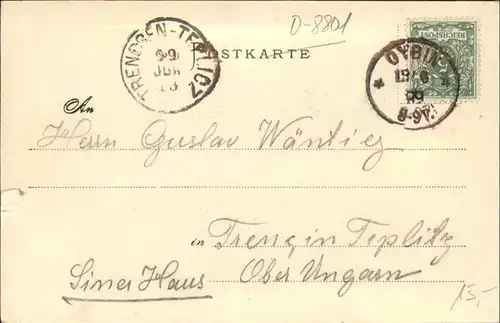 D-8801
POSTKARTE
TRENCSEN-TEPLICZ
99
REICHSPOST
OYBIN
99
8-9V.
An
Herrn Gustav Wäntig
in Trencsin Teplitz
Sina Haus Ober Ungarn
15,-